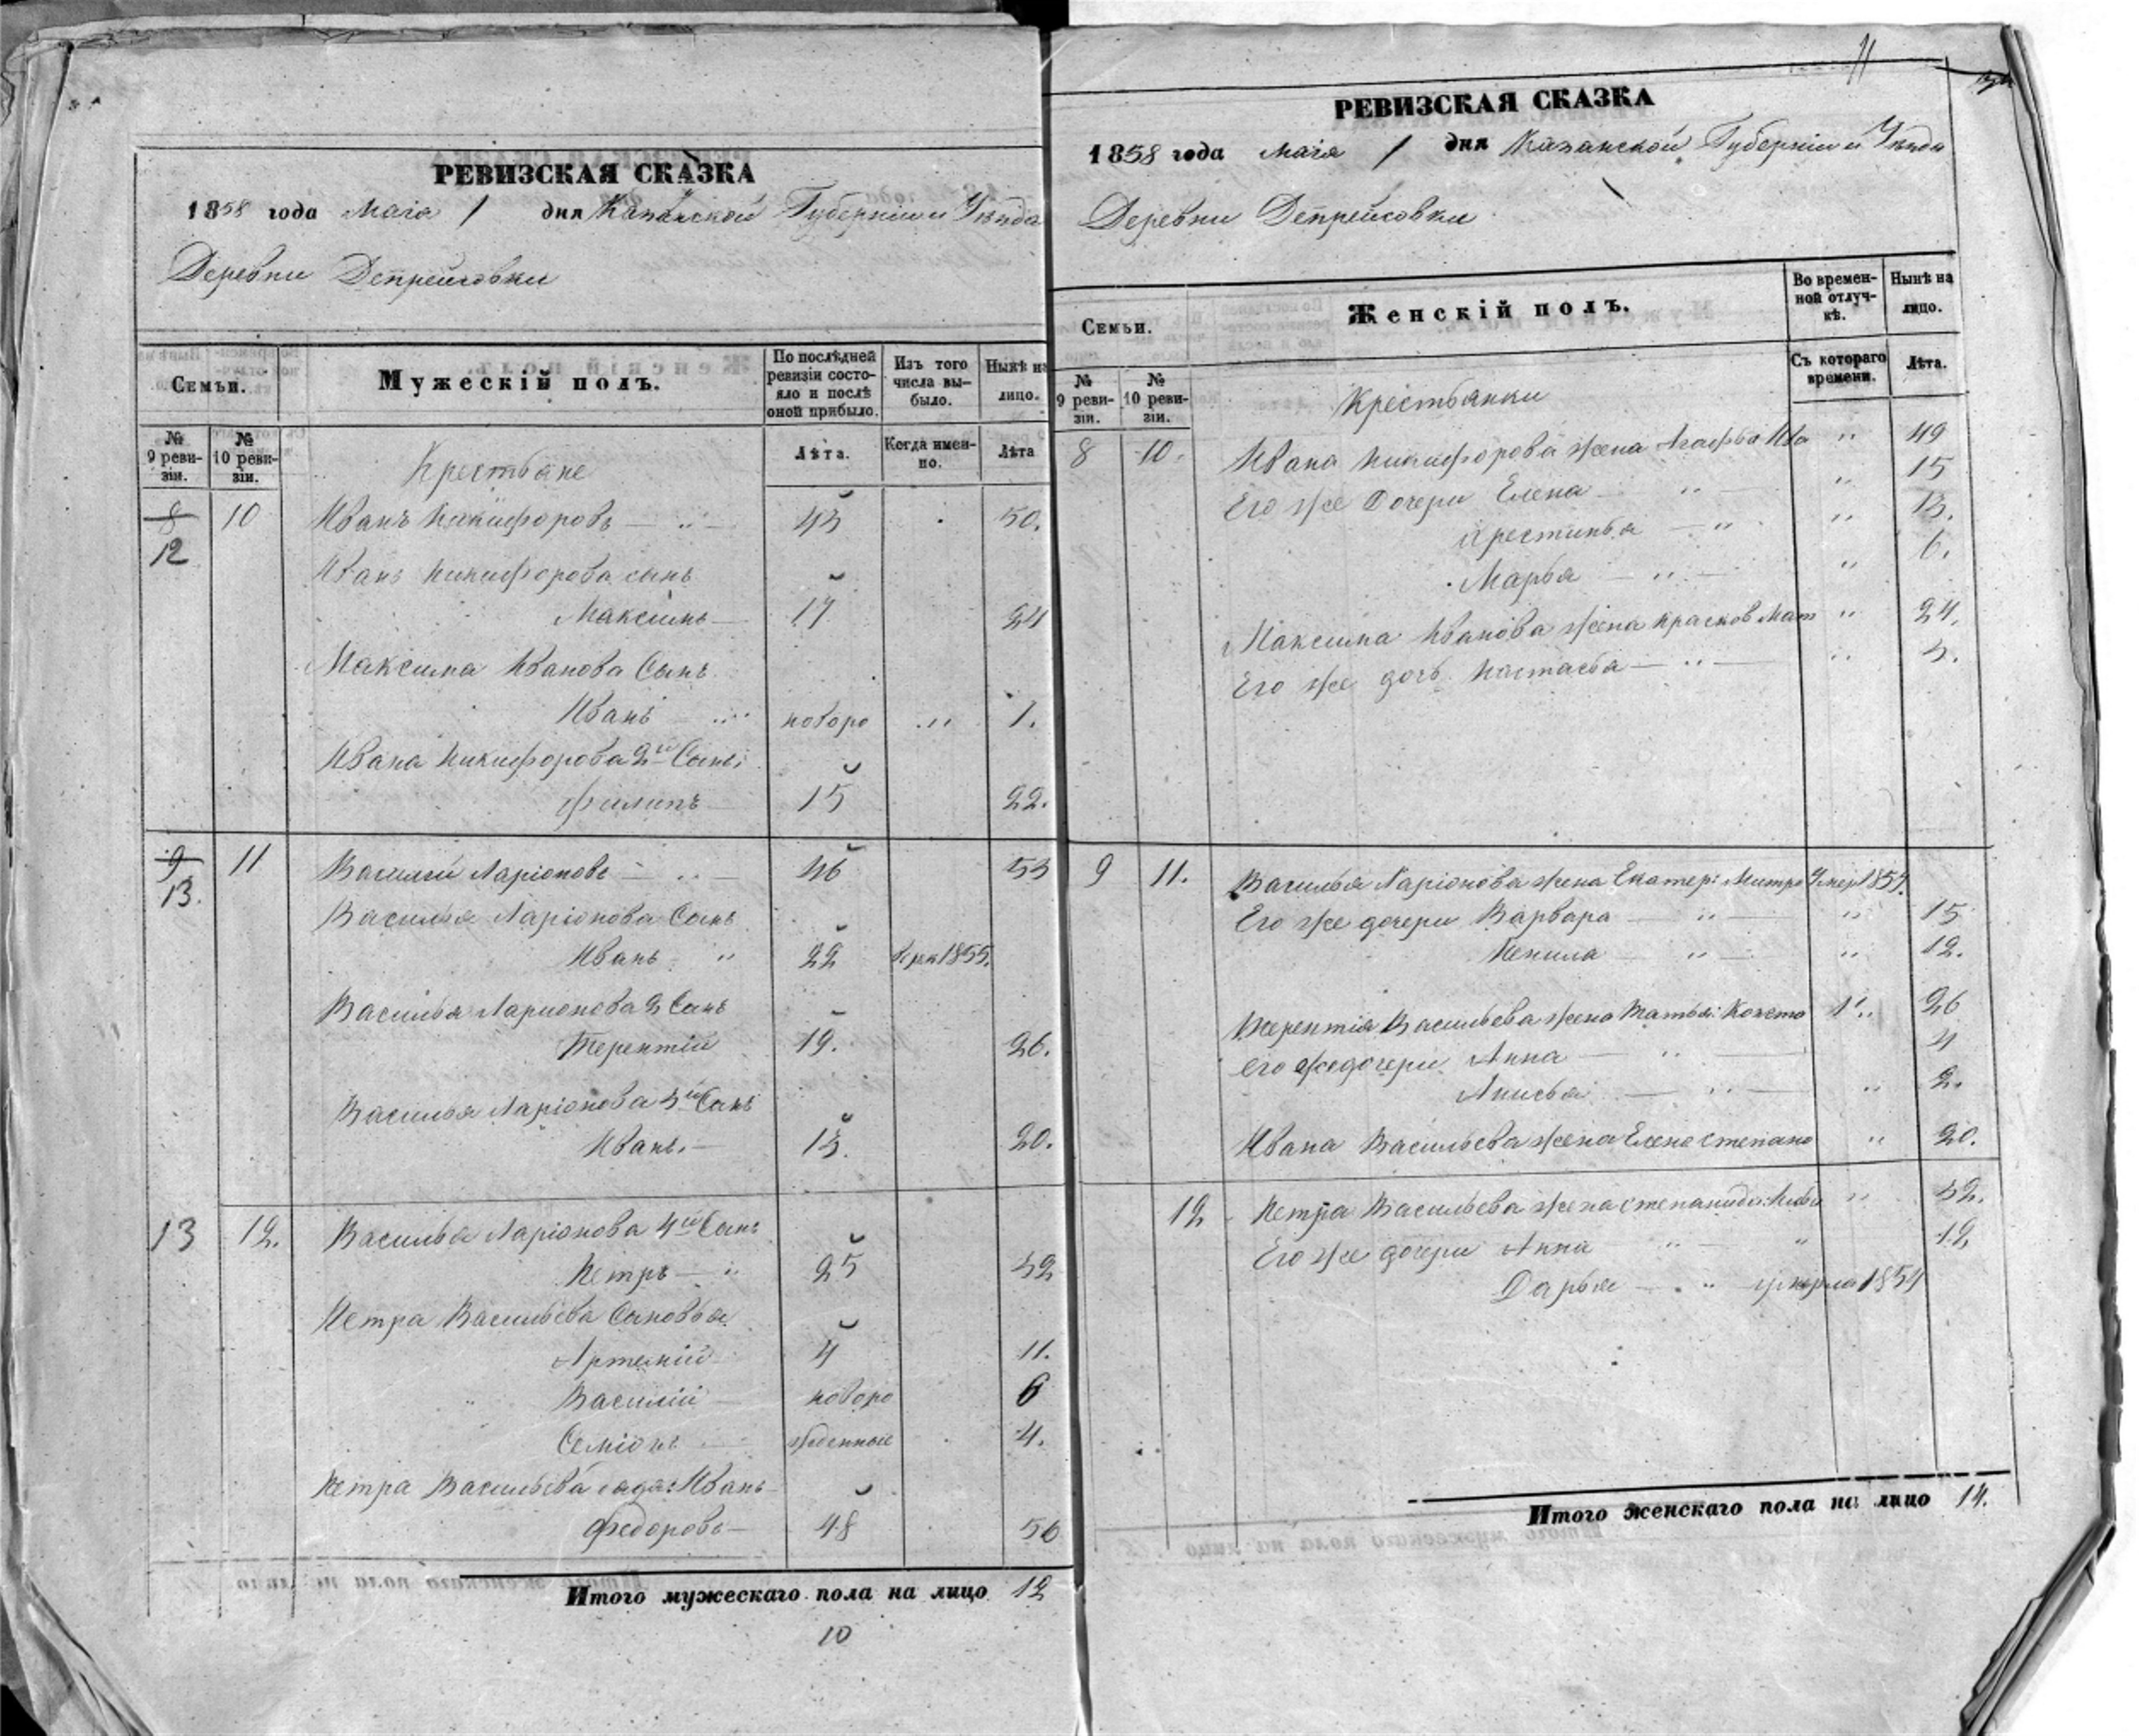 РЕВИЗСКАЯ СКАЗКА
1858 года Маія 1 дня Казанской Губерніи и Уѣзда
Деревни Депрейсовки
Семьи.
Мужескій полъ.
По послѣдней ревизіи состояло и послѣ оной прибыло.
Изъ того числа выбыло.
Нынѣ на лицо.
№ 9 ревизіи.
№ 10 ревизіи.
Лѣта.
Когда именно.
Лѣта
Крестьяне
8 10 Иванъ Никифоровъ — " — 43 50.
12
Иван Никифорова сынъ
Максимъ — 17 24
Максима Иванова Сынъ
Иванъ — " новоро " 1.
Ивана Никифорова 2й Сынъ
Филипъ 15 22.
9 11 Василий Ларіоновъ — " — 46 53
13.
Василья Ларіонова Сынъ
Иванъ " 22 1855.
Василья Ларионова 2 Сынъ
Терентій 19. 26.
Василья Ларіонова 3й Сынъ
Иванъ. — 13. 20.
13 12. Василья Ларіонова 4й Сынъ
Петръ — " 25 32
Петра Васильева Сыновья
Артемій 4 11.
Василій — новоро 6
Семіонъ — жденные 4.
Петра Васильева Иванъ
Федоровъ — 48 56
Итого мужескаго пола на лицо 12
10
11
РЕВИЗСКАЯ СКАЗКА
1858 года Маія 1 дня Казанской Губерніи и Уѣзда
Деревни Депрейсовки
Семьи.
Женскій полъ.
Во временной отлучкѣ.
Нынѣ на лицо.
№ 9 ревизіи.
№ 10 ревизіи.
Съ котораго времени.
Лѣта.
Крестьянки
8 10. Ивана Никифорова жена Агафья " 49
Его же Дочери Елена — " — " 15
Крестинья — " " 13.
Марья — " — " 6.
Максима Иванова жена Прасков Мат " 24.
Его же дочь Настасья — " — " 3.
9 11. Василья Ларіонова жена Екатер: Митро Умер 1857.
Его же дочери Варвара — " — " 15
Ненила — " — " 12.
Терентія Васильева жена Татья: Конста " 26
Его же дочери Анна — " — 4
Анисья — " — " 2.
Ивана Васильева жена Елена Степано " 20.
12 Петра Васильева жена Степанида: " 32.
Его же дочери Анна " " 12.
Дарья — " умерла 1854
Итого женскаго пола на лицо 14.